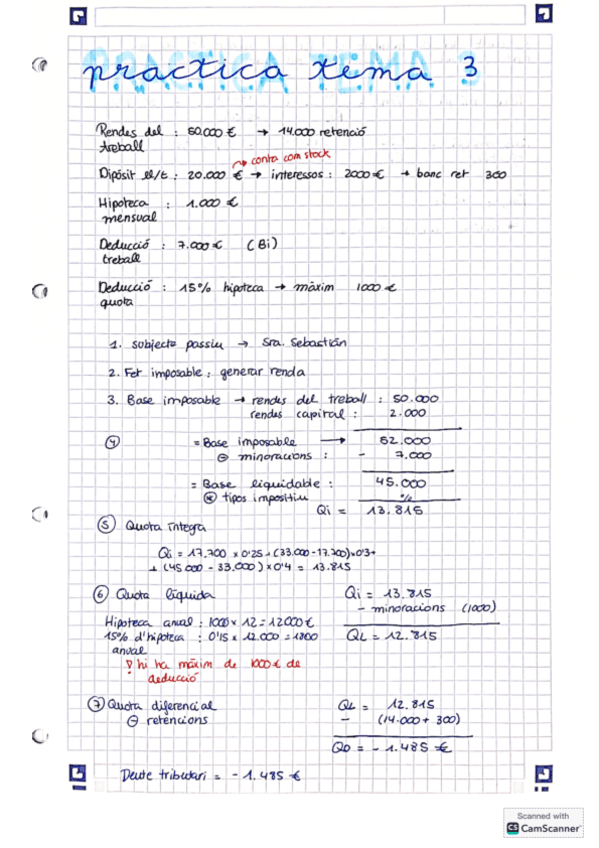 PRACTICA TEMA 3
practica tema 3
Rendes del treball : 50.000 € → 14.000 retenció
→ conta com stock
Dipòsit ll/t : 20.000 € → interessos : 2000 € → banc ret 300
Hipoteca mensual : 1.000 €
Deducció treball : 7.000 € (Bi)
Deducció quota : 15% hipoteca → màxim 1000 €
1. subjecte passiu → Sra. Sebastián
2. Fet imposable : generar renda
3. Base imposable → rendes del treball : 50.000
rendes capital : 2.000
④ = Base imposable → 52.000
⊖ minoracions : - 7.000
= Base liquidable : 45.000
⊗ tipos impositiu %
Qi = 13.815
⑤ Quota íntegra
Qi = 17.700 x 0'25 + (33.000-17.700)x0'3+
+ (45.000 - 33.000) x 0'4 = 13.815
⑥ Quota líquida Qi = 13.815
- minoracions (1000)
Hipoteca anual : 1000 x 12 = 12000 €
15% d'hipoteca anual : 0'15 x 12.000 = 1800 QL = 12.815
! hi ha màxim de 1000 € de
deducció
⑦ Quota diferencial QL = 12.815
⊖ retencions - (14.000 + 300)
QD = - 1.485 €
Deute tributari = - 1.485 €
Scanned with
CS CamScanner